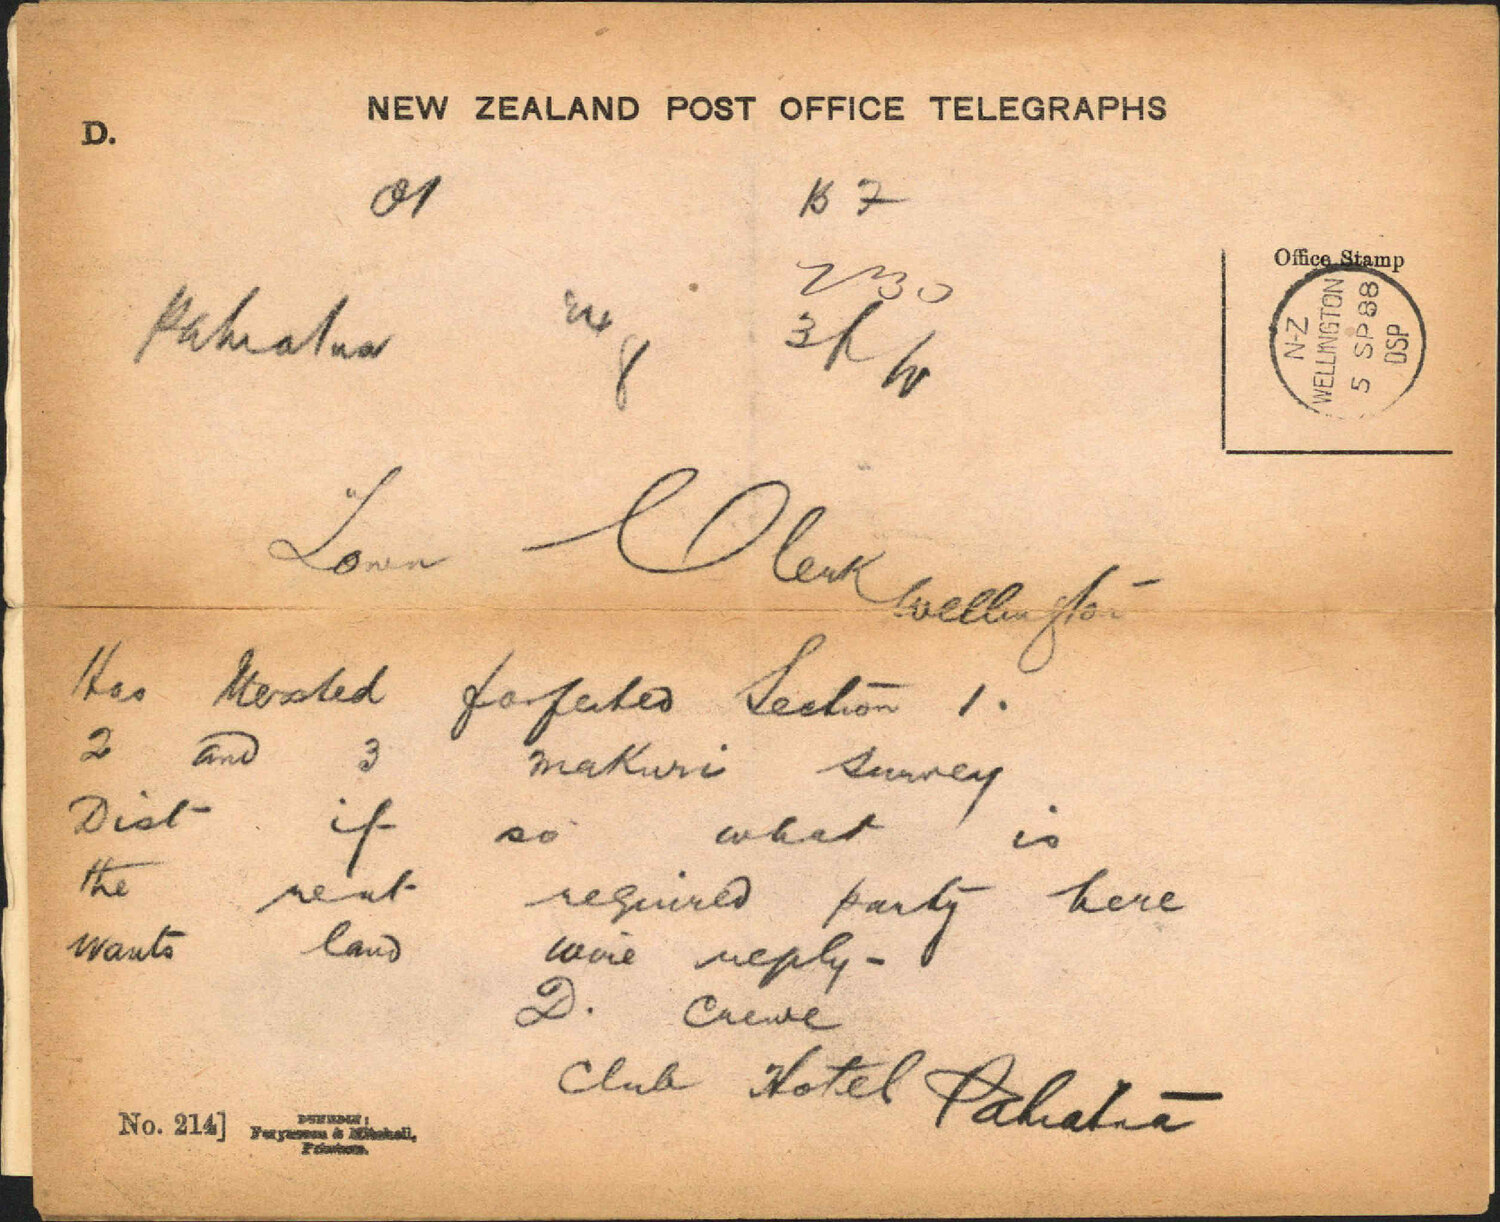 NEW ZEALAND POST OFFICE TELEGRAPHS
D.
Office Stamp
N-Z
WELLINGTON
5 SP 88
DSP
Pahiatua
230
Town Clerk
Wellington
Has forfeited Section 1.
2 and 3 makuri survey
Dist if so what is
the rent required party here
wants land wire reply-
D. Crewe
Club Hotel Pahiatua
No. 214]
DUNEDIN:
Fergusson & Mitchell,
Printers.